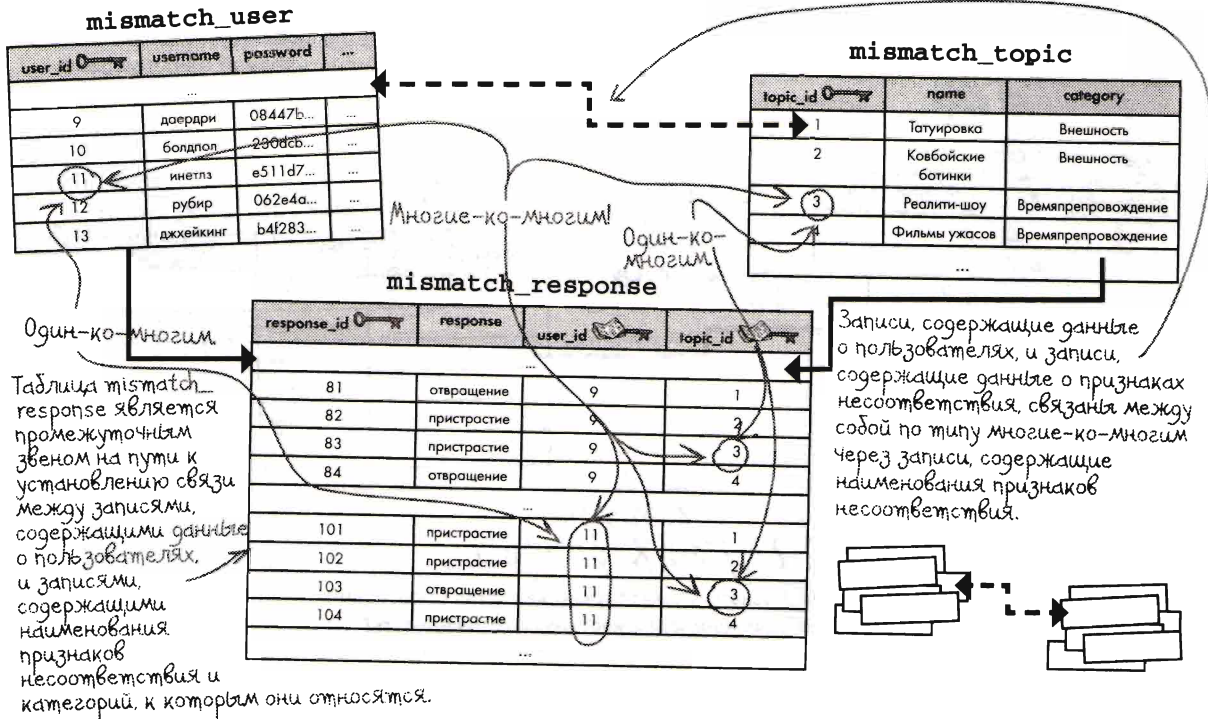 mismatch_user
user_id username password ...
...
9 даердри 08447b... ...
10 болдпол 230dcb... ...
11 инетлз e511d7... ...
12 рубир 062e4a... ...
13 джхейкинг b4f283... ...
mismatch_topic
topic_id name category
1 Татуировка Внешность
2 Ковбойские Внешность
ботинки
3 Реалити-шоу Времяпрепровождение
4 Фильмы ужасов Времяпрепровождение
...
Многие-ко-многим!
Один-ко-
многим
mismatch_response
response_id response user_id topic_id
...
81 отвращение 9 1
82 пристрастие 9 2
83 пристрастие 9 3
84 отвращение 9 4
...
101 пристрастие 11 1
102 пристрастие 11 2
103 отвращение 11 3
104 пристрастие 11 4
...
Один-ко-многим
Таблица mismatch_
response является
промежуточным
звеном на пути к
установлению связи
между записями,
содержащими данные
о пользователях,
и записями,
содержащими
наименования
признаков
несоответствия и
категорий, к которым они относятся.
Записи, содержащие данные
о пользователях, и записи,
содержащие данные о признаках
несоответствия, связаны между
собой по типу многие-ко-многим
через записи, содержащие
наименования признаков
несоответствия.